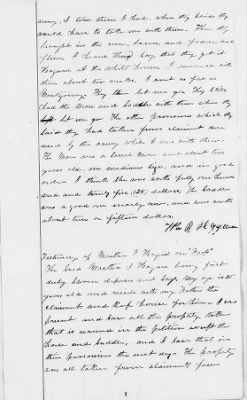 army. I told them I had when they said they
would have to take me with them. Then they
brought in the corn, bacon and fodder and
flour. I heard them say that they got it
Hagans. At the whole house I remained with
them about two weeks. I went as far as
Montgomery. They then let me go. They still
had the Mare and saddle with them when they
left let me go. The other provisions which they
said they had taken from claimant were
used by the army while I was with them.
The Mare was a sorrel Mare and about two
years old, was medium size, and in good
order. I think she was worth fully one hun-
dred and twenty five (125) dollars. The saddle
was a good one nearly new, and was worth
about ten or fifteen dollars.
Testimony of Martha J Hagins on "Facts"
The said Martha J Hagan being first
duly sworn deposes and says. My age is 25
years old and reside with my Father the
claimant and kept house for him. I was
present and saw all this property taken
that is named in the petition except the
horse and saddle, and I saw that in
their possession the next day. The property
was all taken from claimants farm